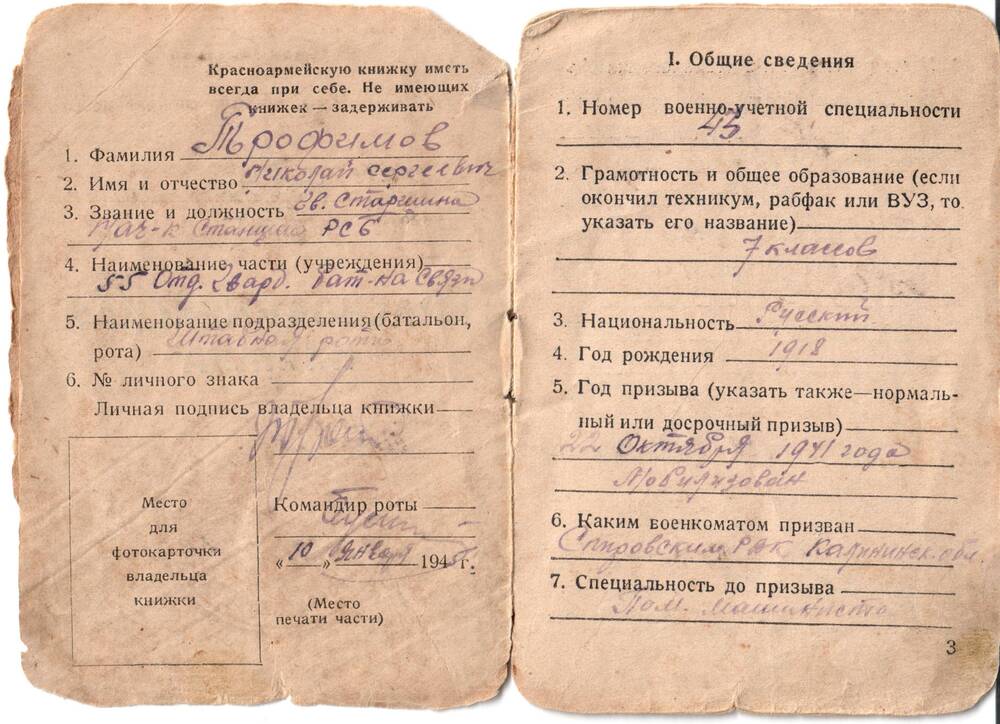 Красноармейскую книжку иметь
всегда при себе. Не имеющих
книжек — задерживать
1. Фамилия Трофимов
2. Имя и отчество Николай Сергеевич
3. Звание и должность Гв. Старшина
Нач-к Станции РСБ
4. Наименование части (учреждения)
55 Отд. Гвард. Бат-на Связи
5. Наименование подразделения (батальон,
рота) Штабная рота
6. № личного знака
Личная подпись владельца книжки
Место
для
фотокарточки
владельца
книжки
Командир роты
„10„ Января 1945 г.
(Место
печати части)
I. Общие сведения
1. Номер военно-учетной специальности
45
2. Грамотность и общее образование (если
окончил техникум, рабфак или ВУЗ, то
указать его название)
7 классов
3. Национальность Русский
4. Год рождения 1918
5. Год призыва (указать также—нормаль-
ный или досрочный призыв)
22 Октября 1941 года
Мобилизован
6. Каким военкоматом призван
Спировским РВК Калининск. обл.
7. Специальность до призыва
Пом. машиниста
3